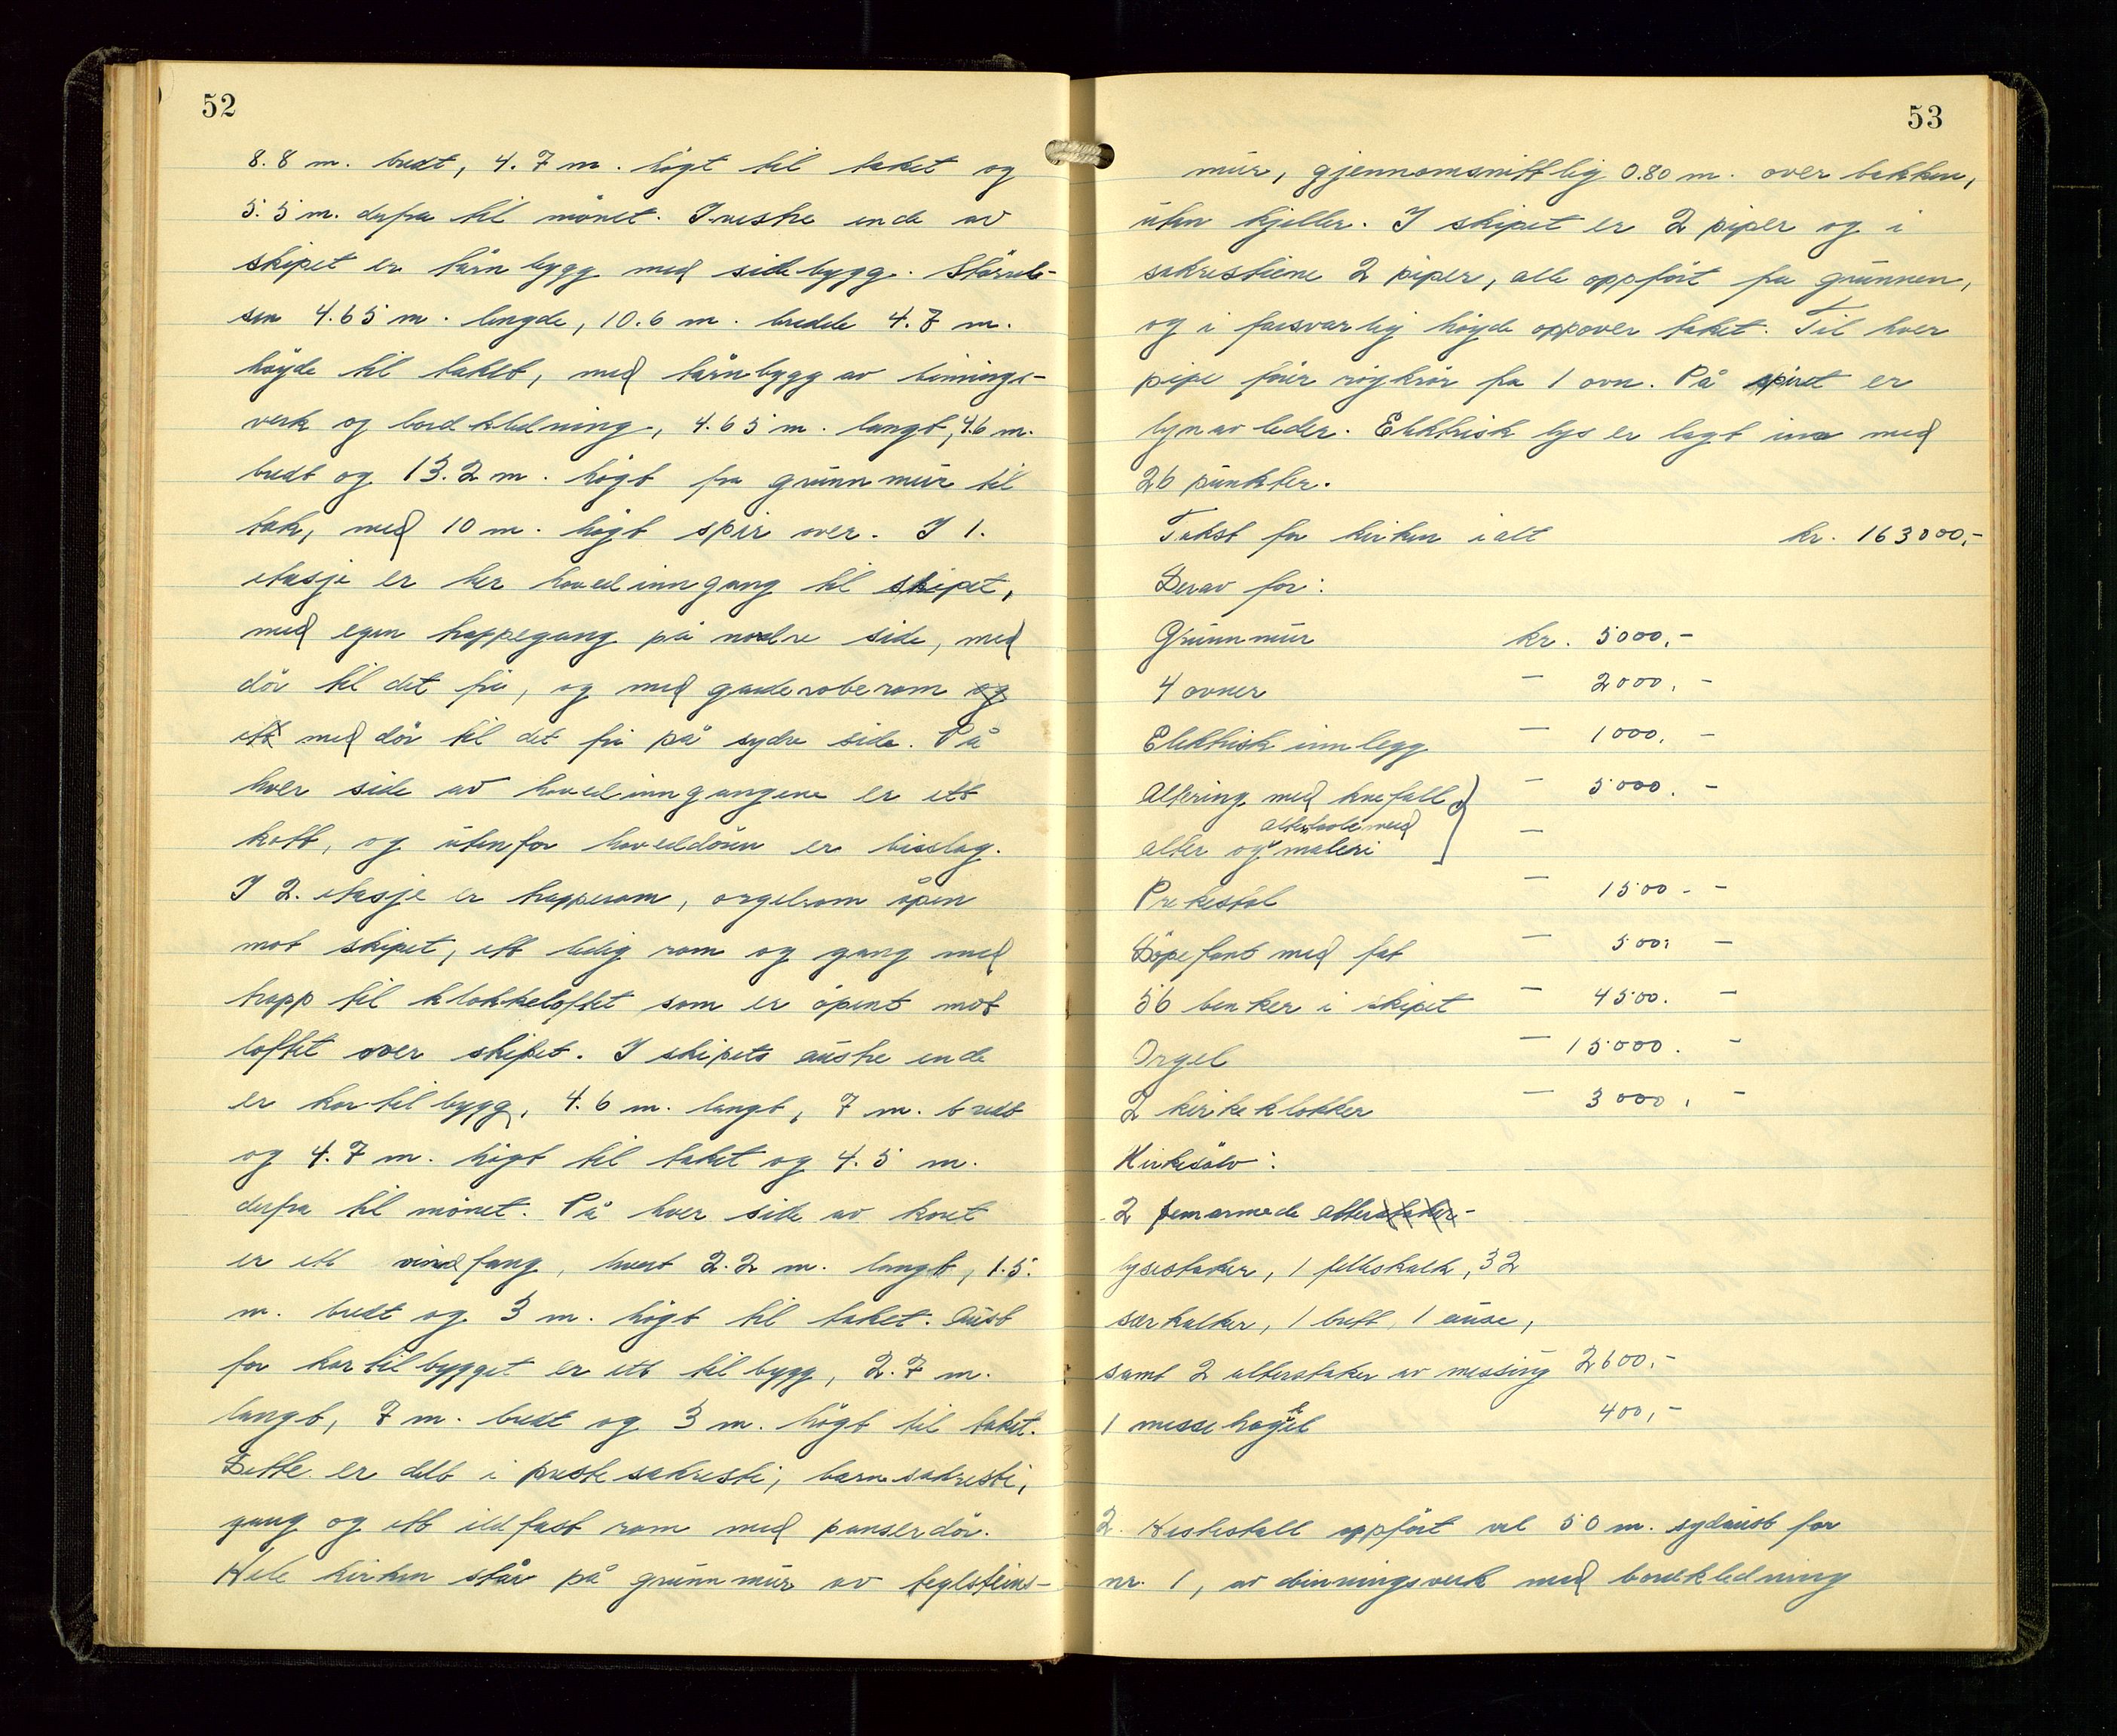 52
8.8 m. bredt, 4.7 m. högt til taket og
5.5 m. derfra til mönet. I vestre ende av
skipet er tårnbygg med sidebygg. Störrel-
sen 4.65 m. lengde, 10.6 m. bredde 4.7 m.
höyde til taket, med tårnbygg av binnings-
verk og bordkledning, 4.65 m. langt, 4.6 m.
bredt og 13.2 m. högt fra grunnmur til
tak, med 10 m. högt spir over. I 1.
etasje er her hovedinngang til skipet,
med egen trappegang på nordre side, med
dör til det fri, og med garderoberom og
ett med dör til det fri på sydre side. På
hver side av hovedinngangene er ett
kott, og utenfor hoveddören er bislag.
I 2. etasje er trapperom, orgelrom åpen
mot skipet, ett ledig rom og gang med
trapp til klokkeloftet som er åpent mot
loftet over skipet. I skipets austre ende
er kortilbygg, 4.6 m. langt, 7 m. bredt
og 4.7 m. högt til taket og 4.5 m.
derfra til mönet. På hver side av koret
er ett vindfang, hvert 2.2 m. langt, 1.5.
m. bredt og 3 m. högt til taket. Aust
for kortilbygget er ett tilbygg, 2.7 m.
langt, 7 m. bredt og 3 m. högt til taket.
Dette er delt i prestesakresti, barnesakresti,
gang og ett ildfast rom med panserdör.
Hele kirken står på grunnmur av teglsteins-
53
mur, gjennomsnittlig 0.80 m. over bakken,
uten kjeller. I skipet er 2 piper og i
sakrestiene 2 piper, alle oppfört fra grunnen,
og i forsvarlig höyde oppover taket. Til hver
pipe förer röykrör fra 1 ovn. På spiret er
lynavleder. Elektrisk lys er lagt inn med
26 punkter.
Takst for kirken ialt kr. 163000,-
Derav for:
Grunnmur kr. 5000,-
4 ovner — 2000, -
Elektrisk innlegg — 1000, -
Altering med knefall — 5000. -
altertavle med
alter og maleri —
Prekestol — 1500 - -
Döpefont med fat — 500: -
56 benker i skipet — 4500. -
Orgel — 15000. -
2 kirkeklokker — 3000, -
Kirkesölv:
2 femarmede alterstaker-
lysestaker, 1 felleskalk, 32
særkalker, 1 brett, 1 ause,
samt 2 alterstaker av messing 2600,-
1 messehagel 400,-
2. Hestestall oppfört vel 50 m. sydaust for
nr. 1, av binningsverk med bordkledning